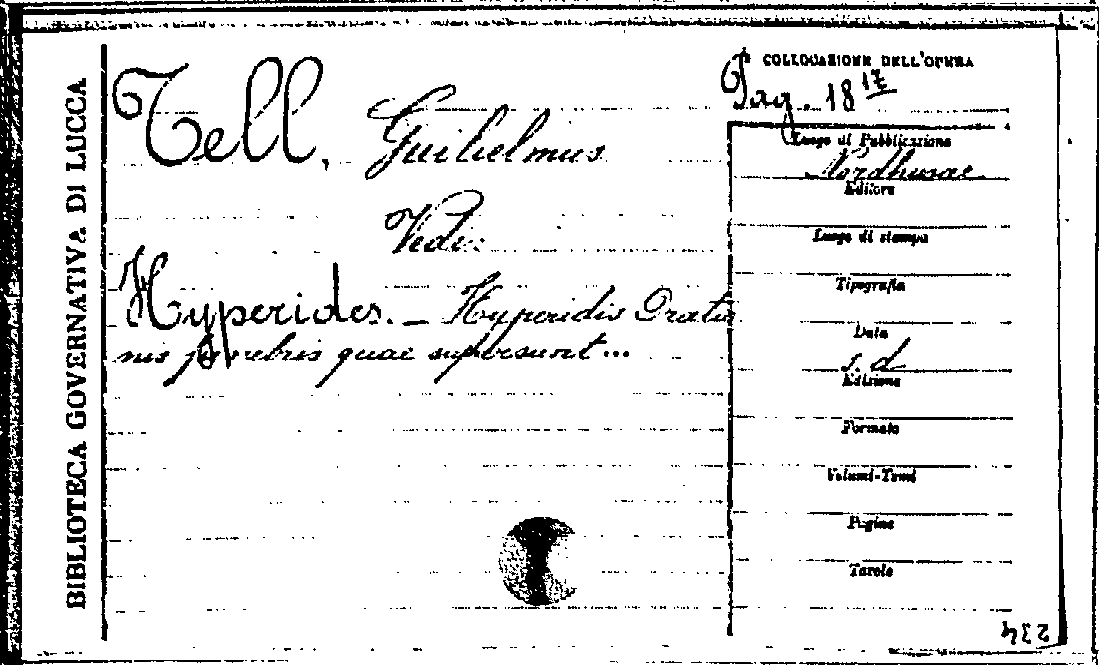 BIBLIOTECA GOVERNATIVA DI LUCCA
Tell, Guilielmus
Vedi:
Hyperides. — Hyperidis Oratio
nis funebris quae supersunt...
COLLOCAZIONE DELL'OPERA
Pag. 18 17
Luogo di Pubblicazione
Nordhusae
Editore
Luogo di stampa
Tipografia
Data
s. d.
Edizione
Formato
Volumi-Tomi
Pagine
Tavole
234